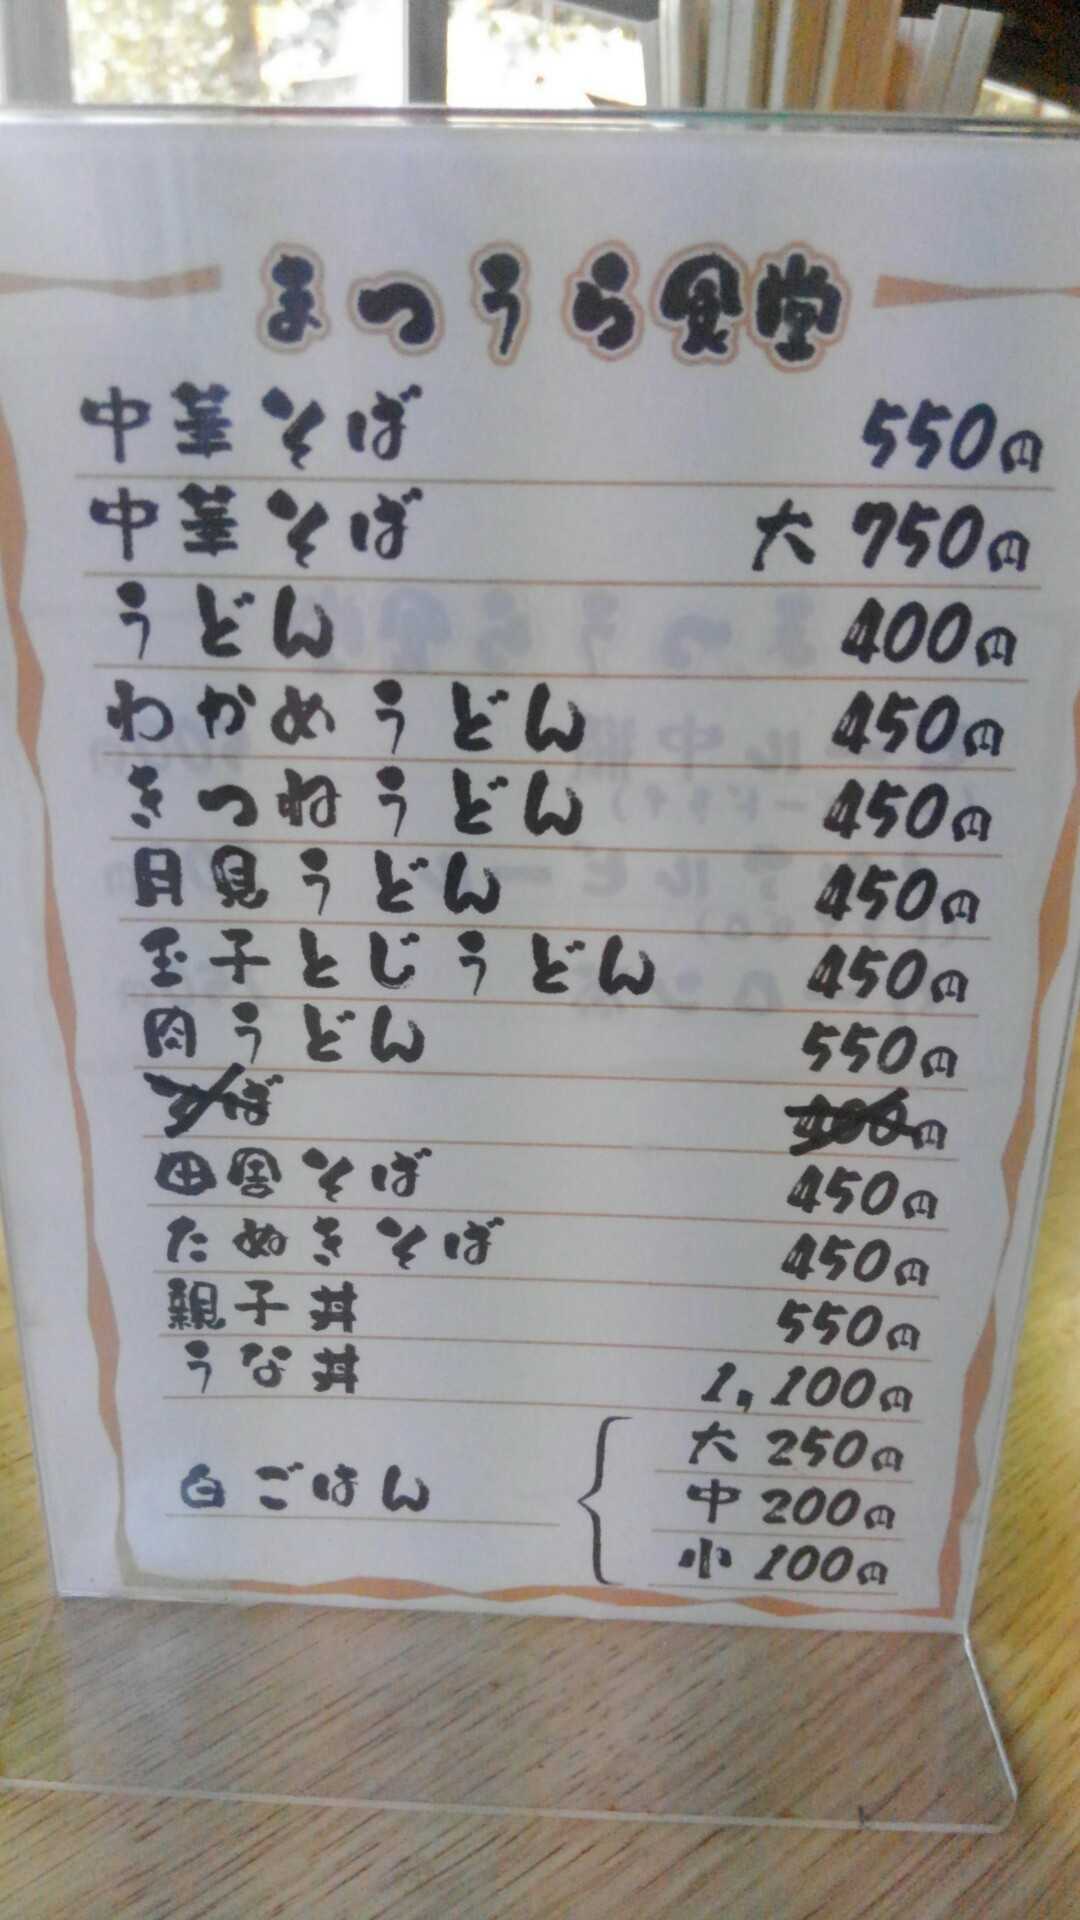 まつうら食堂
中華そば 550円
中華そば 大 750円
うどん 400円
わかめうどん 450円
きつねうどん 450円
月見うどん 450円
玉子とじうどん 450円
肉うどん 550円
そば 400円
田舎そば 450円
たぬきそば 450円
親子丼 550円
うな丼 1,100円
白ごはん
大 250円
中 200円
小 100円